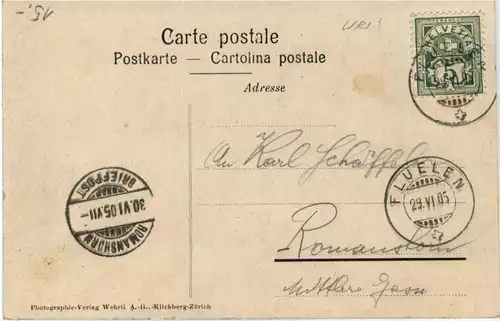 15,-
URI
Carte postale
Postkarte — Cartolina postale
Adresse
HELVETIA
An Karl Schäffel
FLUELEN
29.VI.05
BRIEFPOST
30.VI.05.VII-
ROMANSHORN
Romanshorn
Mittlere Gasse
Photographie-Verlag Wehrli A.-G., Kilchberg-Zürich